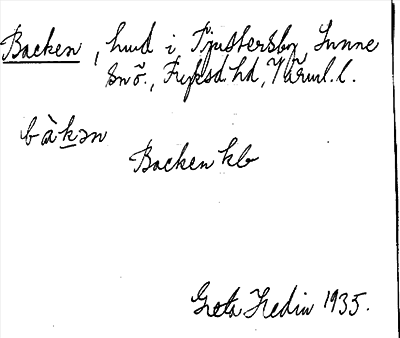 Backen, hmd i Tjustersby, Sunne
snö., Fryksd hd, Värml. l.
bàkən
Backen kb
Greta Hedin 1935.